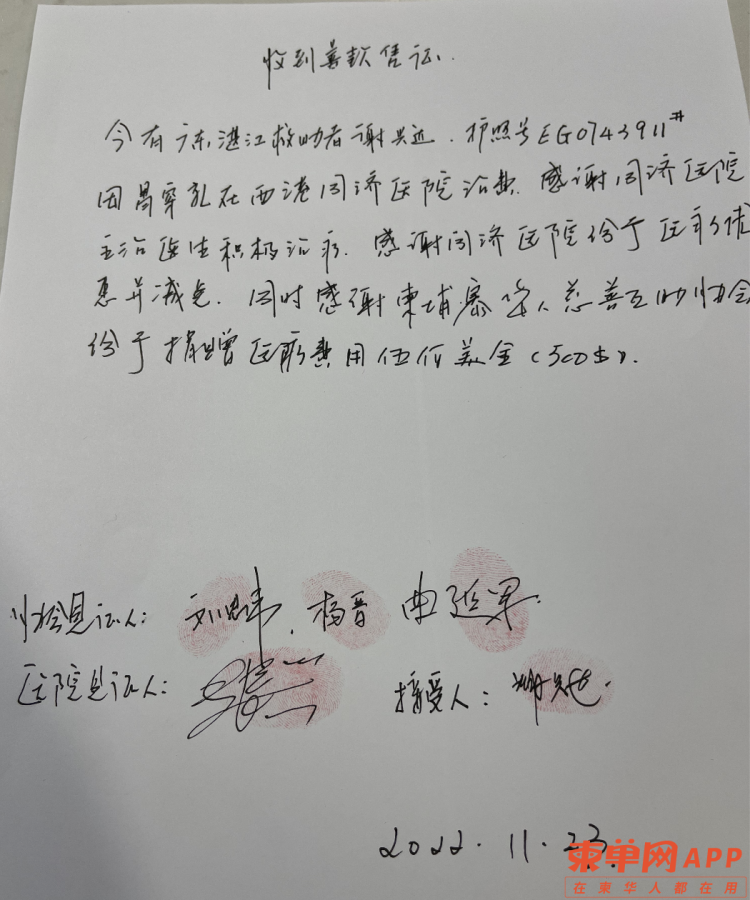 收到善款凭证.
今有广东湛江救助者谢 . 护照号EG0743911#
因胃穿孔在西港同济医院治

疗. 感谢同济医院
主治医生积极治疗. 感谢同济医院给于医疗优
惠并减免. 同时感谢柬埔寨华人慈善互助协会
给于捐赠医疗费用伍佰美金(500$).
协会见证人: 杨晋 曲延军.
医院见证人: 接受人: 谢
2022.11.23.
柬单网APP
在柬华人都在用